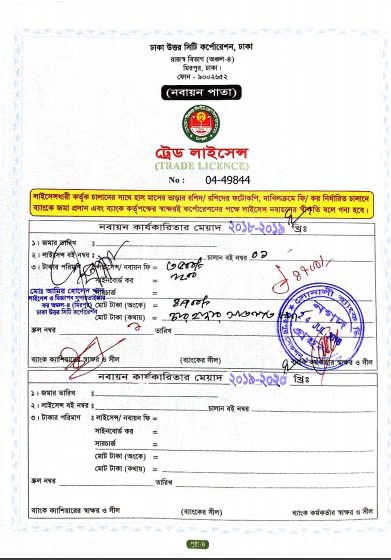 ঢাকা উত্তর সিটি কর্পোরেশন, ঢাকা
রাজস্ব বিভাগ (অঞ্চল-৪)
মিরপুর, ঢাকা।
ফোন - ৯০০২৬৫২
(নবায়ন পাতা)
ট্রেড লাইসেন্স
(TRADE LICENCE)
No : 04-49844
লাইসেন্সধারী কর্তৃক চালানের সাথে হাল মাসের ভাড়ার রশিদ/ রশিদের ফটোকপি, দাখিলক্রমে ফি/ কর নির্ধারিত চালানে
ব্যাংকে জমা প্রদান এবং ব্যাংক কর্তৃপক্ষের স্বাক্ষরই কর্পোরেশনের পক্ষে লাইসেন্স নবায়নের স্বীকৃতি বলে গন্য হবে।
নবায়ন কার্যকারিতার মেয়াদ ২০১৮-২০১৯ খ্রিঃ
১। জমার তারিখ :
২। লাইসেন্স বই নম্বর : চালান বই নম্বর ০১
৩। টাকার পরিমাণ : লাইসেন্স/ নবায়ন ফি =
সাইনবোর্ড কর =
মোট টাকা (অংকে) =
মোট টাকা (কথায়) =
ঢাকা উত্তর সিটি কর্পোরেশন
স্ক্রল নম্বর তারিখ
ব্যাংক ক্যাশিয়ারের স্বাক্ষর ও সীল (ব্যাংকের সীল)
নবায়ন কার্যকারিতার মেয়াদ ২০১৯-২০২০ খ্রিঃ
১। জমার তারিখ :
২। লাইসেন্স বই নম্বর : চালান বই নম্বর
৩। টাকার পরিমাণ : লাইসেন্স/ নবায়ন ফি =
সাইনবোর্ড কর =
সারচার্জ =
মোট টাকা (অংকে) =
মোট টাকা (কথায়) =
স্ক্রল নম্বর তারিখ
ব্যাংক ক্যাশিয়ারের স্বাক্ষর ও সীল (ব্যাংকের সীল) ব্যাংক কর্মকর্তার স্বাক্ষর ও সীল
পৃষ্ঠা-৪